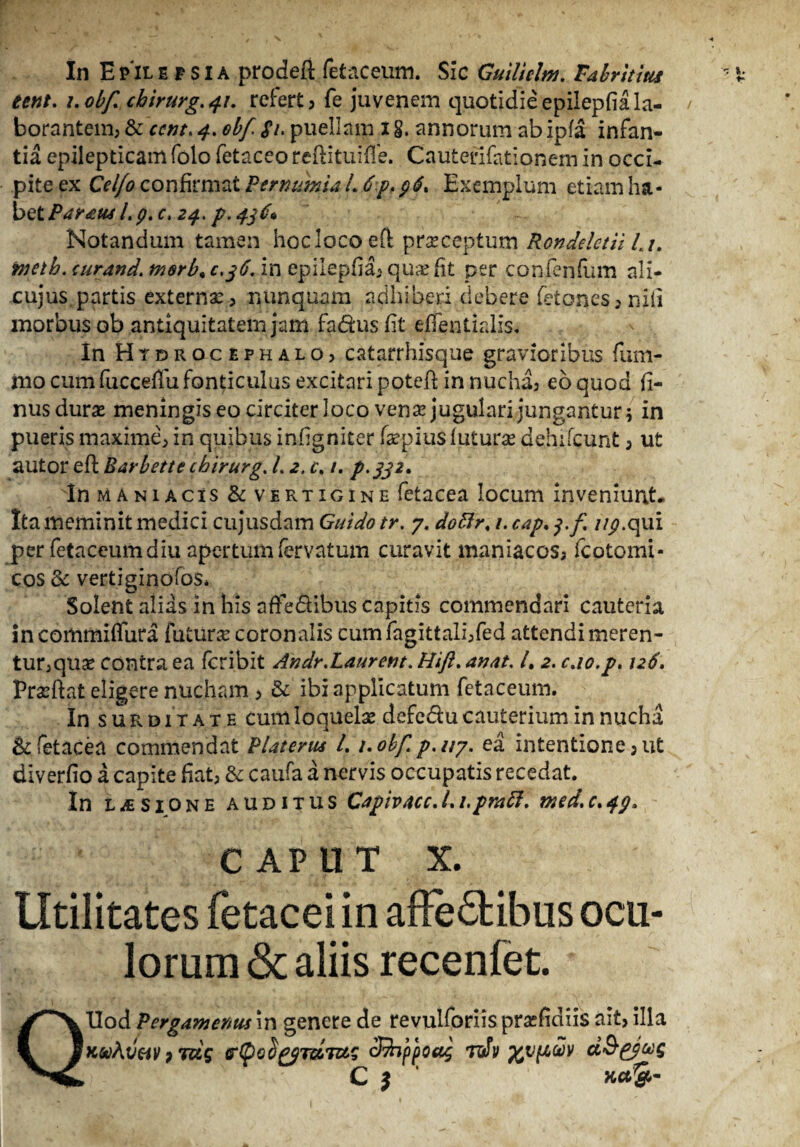 In EPILEPSIA prodeſt ſetaceum. Sic Guilielm. Fabritius
cent. 1. obſ. chirurg. 41. refert, ſe juvenem quotidie epilepſiâ la-
borantem, & cent. 4. obſ. 81. puellam 18. annorum ab ipſâ infan-
tiâ epilepticam ſolo ſetaceo reſtituiſſe. Cauteriſationem in occi-
pite ex Celſo confirmat Pernumia l. 6 p. 96. Exemplum etiam ha-
bet Paræus l. 9. c. 24. p. 436.
Notandum tamen hoc loco eſt præceptum Rondeletii l. 1.
meth. curand. morb. c. 36. in epilepſiâ, quæ fit per conſenſum ali-
cujus partis externæ, nunquam adhiberi debere ſetones, niſi
morbus ob antiquitatem jam factus ſit eſſentialis.
In HYDROCEPHALO, catarrhisque gravioribus ſum-
mo cum ſucceſſu fonticulus excitari poteſt in nuchâ, eò quod ſi-
nus duræ meningis eo circiter loco venæ jugulari jungantur; in
pueris maximè, in quibus inſigniter ſæpius ſuturæ dehiſcunt, ut
autor eſt Barbette chirurg. l. 2. c. 1. p. 332.
In MANIACIS & VERTIGINE ſetacea locum inveniunt.
Ita meminit medici cujusdam Guido tr. 7. doctr. 1. cap. 3. f. 119. qui
per ſetaceum diu apertum ſervatum curavit maniacos, ſcotomi-
cos & vertiginoſos.
Solent aliàs in his affectibus capitis commendari cauteria
in commiſſurâ ſuturæ coronalis cum ſagittali, ſed attendi meren-
tur, quæ contra ea ſcribit Andr. Laurent. Hiſt. anat. l. 2. c. 10. p. 126.
Præſtat eligere nucham, & ibi applicatum ſetaceum.
In SURDITATE cum loquelæ defectu cauterium in nuchâ
& ſetacea commendat Platerus l. 1. obſ. p. 117. eâ intentione, ut
diverſio à capite fiat, & cauſa à nervis occupatis recedat.
In LÆSIONE AUDITUS Capivacc. l. 1. pract. med. c. 49.
CAPUT X.
Utilitates ſetacei in affectibus ocu-
lorum & aliis recenſet.
QUod Pergamenus in genere de revulſoriis præſidiis ait, illa
κωλύειν, τὰς σφοδροτάτας ἐπιρροὰς τῶν χυμῶν ἀθρόως
C 3 κατα-